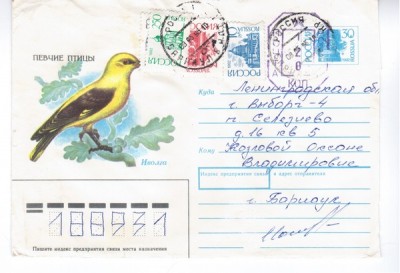 ПЕВЧИЕ ПТИЦЫ
250
РОССИЯ
РОССИЯ
30
Куда Ленинградская об.
г Выборг-4
п Селезнево
д. 16 кв 5
Кому Козловой Оксане
Владимировне
Индекс предприятия связи и адрес отправителя
г Барнаул
Иволга
188931
Пишите индекс предприятия связи места назначения